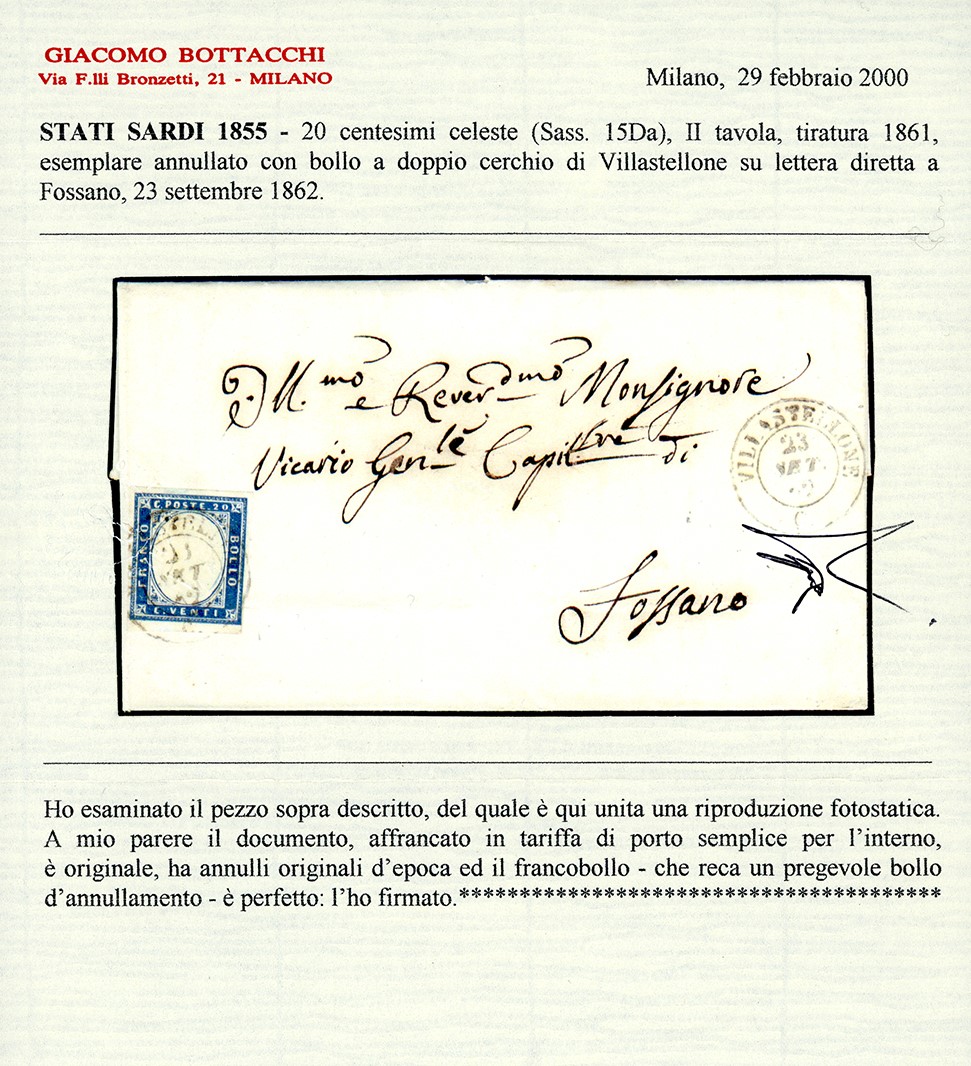 GIACOMO BOTTACCHI
Via F.lli Bronzetti, 21 - MILANO
Milano, 29 febbraio 2000
STATI SARDI 1855 - 20 centesimi celeste (Sass. 15Da), II tavola, tiratura 1861,
esemplare annullato con bollo a doppio cerchio di Villastellone su lettera diretta a
Fossano, 23 settembre 1862.
Ill.mo e Rever.dmo Monsignore
Vicario Gen.le Capit.lre di
VILLASTELLONE
23
SET
62
C. POSTE. 20
FRANCO
BOLLO
C. VENTI
23
SET
62
Fossano
Ho esaminato il pezzo sopra descritto, del quale è qui unita una riproduzione fotostatica.
A mio parere il documento, affrancato in tariffa di porto semplice per l'interno,
è originale, ha annulli originali d'epoca ed il francobollo - che reca un pregevole bollo
d'annullamento - è perfetto: l'ho firmato.****************************************